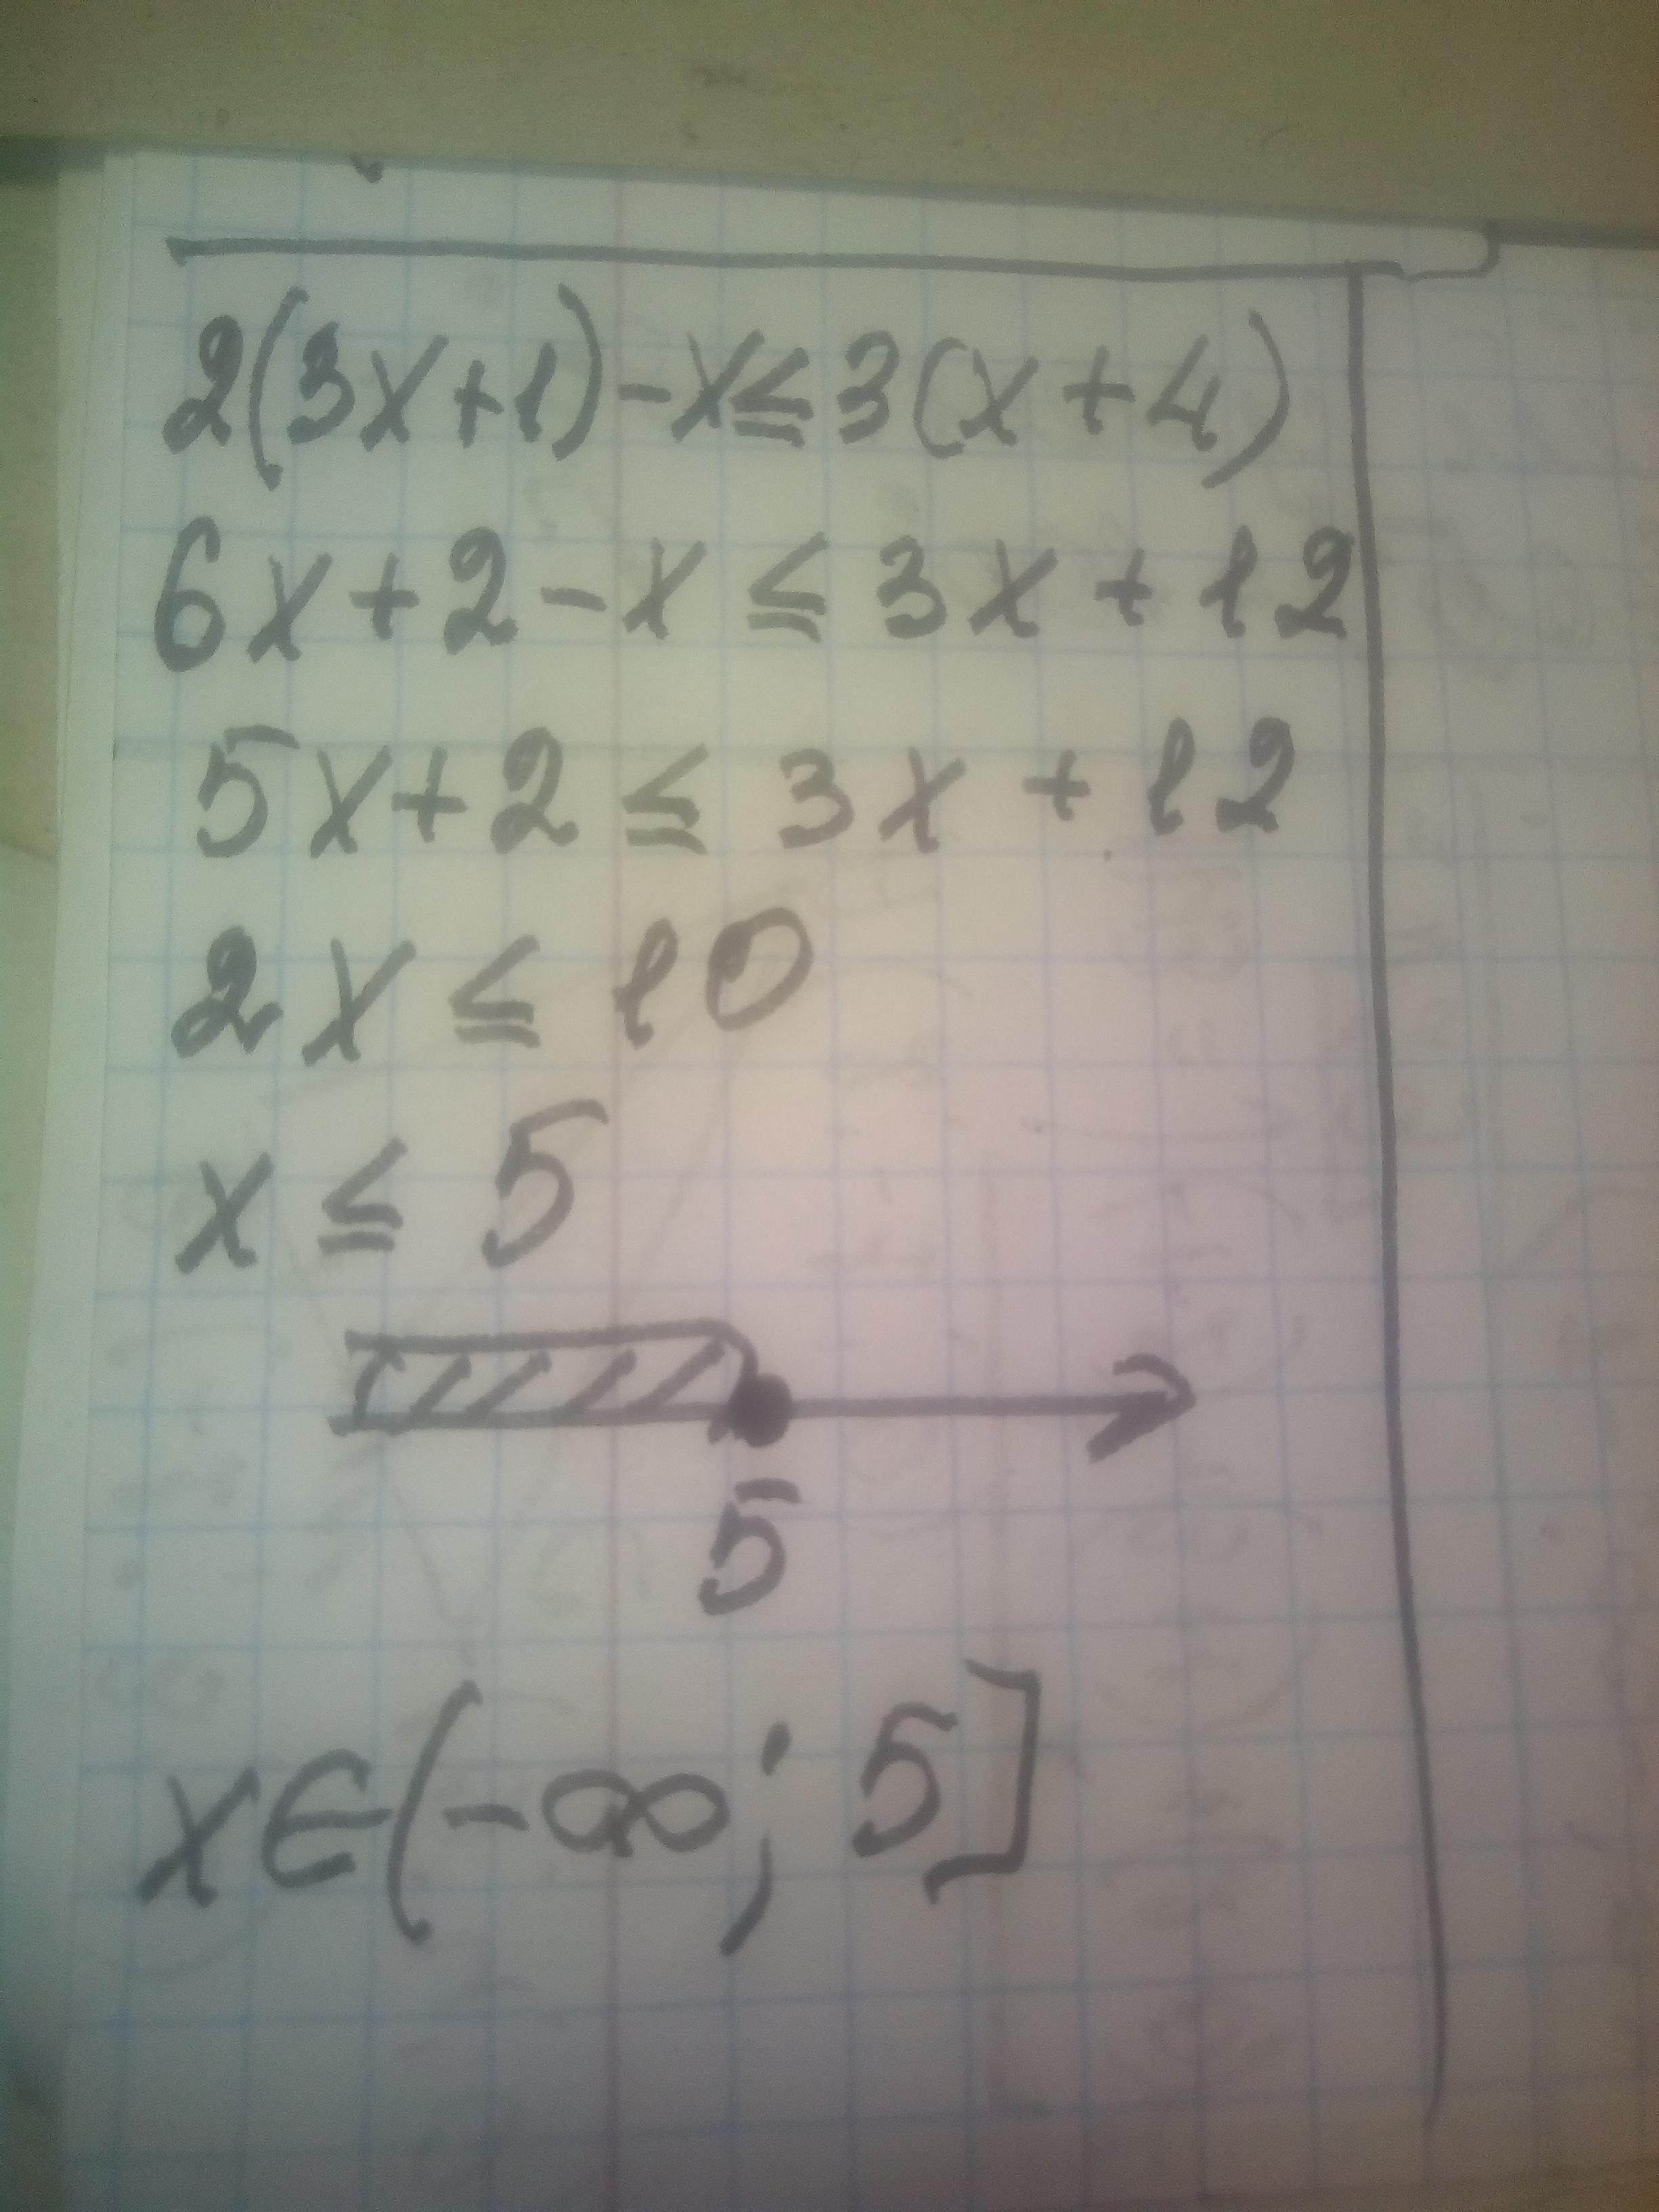 2(3x+1)-x≤3(x+4)
6x+2-x≤3x+12
5x+2≤3x+12
2x≤10
x≤5
5
x∈(-∞;5]